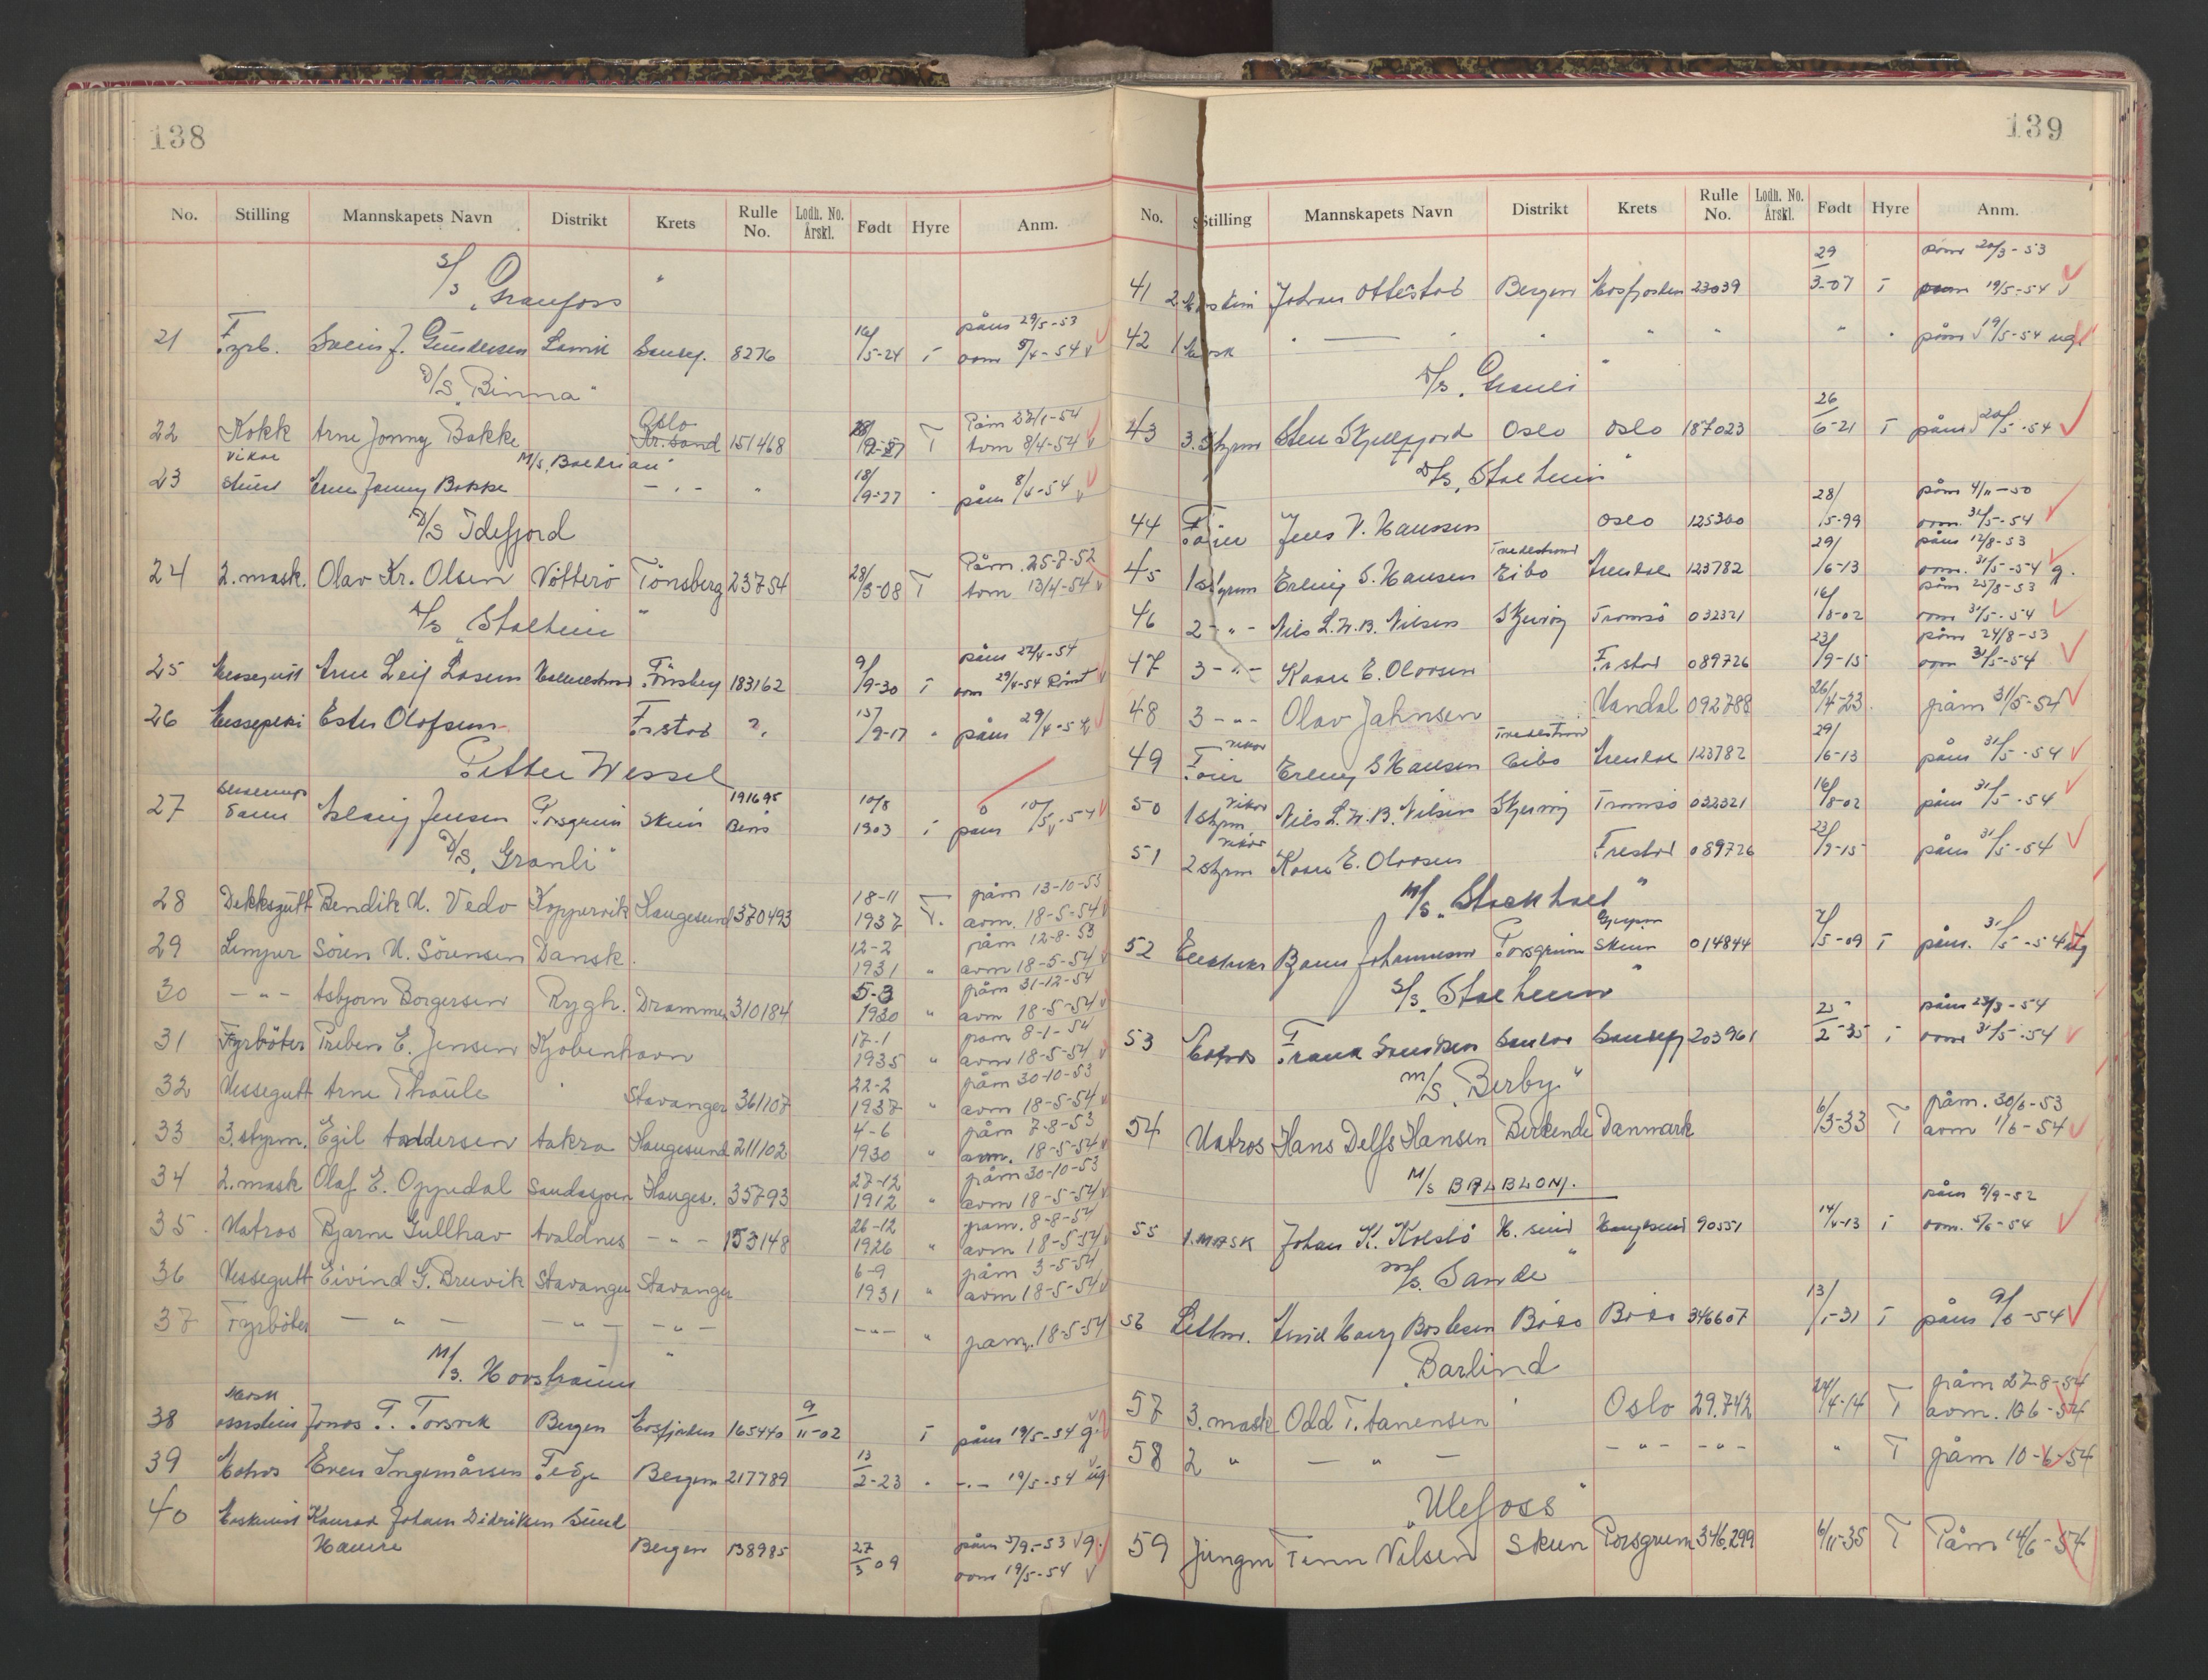 138
No. Stilling Mannskapets Navn Distrikt Krets Rulle No. Lodh. No. Årskl. Født Hyre Anm.
S/S "Granfoss"
påm 29/5-53
21 Fyrb. Svein J. Gundersen Larvik Sandef. 8276 16/5-24 T avm 5/4-54
D/S "Binna"
Oslo Påm 22/1-54
22 Kokk Arne Jonny Bakke Kr.sand 151468 T avm 8/4-54
vikar M/S "Baldrian"
23 stuert Arne Jonny Bakke - " - " 18/9-27 " påm 8/4-54
D/S Idefjord
Påm. 25-8-52
24 2. mask. Olav Kr. Olsen Nötterö Tönsberg 23754 28/3-08 T avm 13/4-54
D/S "Stalheim"
25 Messegutt Arne Leif Holmestrand Tönsberg 183162 9/9-30 T avm 29/4-54
26 Messepike Ester Olofsen Fr.stad ?. /9-17 " påm 29/4-54
Petter Wessel
191695
27 Jensen Porsgrunn Skien 10/8 1903 T påm 10/5-54
D/S "Granli"
28 Dekksgutt Bendik M. Vedo Koppervik Haugesund 370493 18-11 1937 T. påm 13-10-53
avm. 18-5-54
29 Lemper Sören M. Sörensen Dansk. 12-2 1931 " påm 12-8-53
avm 18-5-54
30 - " - Asbjorn Borgersen Rygh. Drammen 310184 5-3 1930 " påm 31-12-54
avm 18-5-54
31 Fyrböter Preben E. Jensen Kjobenhavn 17-1 1935 " påm 8-1-54
avm 18-5-54
32 Messegutt Arne Thaule Stavanger 361107 22-2 1937 " påm 30-10-53
avm 18-5-54
33 3. styrm. Egil Andersen Aakra Haugesund 211102 4-6 1930 " påm 7-8-53
avm. 18-5-54
34 2. mask Olaf E. Oppedal Sandasjoen Hauges. 35793 27-12 1912 " påm 30-10-53
avm 18-5-54
35. Matros Bjarne Gullhav Avaldnes - " - 153148 26-12 1926 " påm. 8-8-54
avm 18-5-54
36 Messegutt Eivind G. Breivik Stavanger Stavanger 6-9 1931 " påm 3-5-54
avm 18-5-54
37 Fyrböter - " - - " - - " - - " - " påm. 18-5-54
M/S. Havstraum
Mask
38 assistent Jonas T. Torsvik Bergen Mosfjorden 165440 9/11-02 T påm 19/5-54 g.
39 Matros Even Ingemårsen Fedje Bergen 217789 13/2-23 " - " - 19/5-54 ug
40 Maskinist Konrad Johan Didriksen Sund
Hauvre Bergen 138985 27/3 09 påm 5/9-53 g.
avm 19/5-54
139
No. Stilling Mannskapets Navn Distrikt Krets Rulle No. Lodh. No. Årskl. Født Hyre Anm.
påm 20/3-53
41 2 Maskin Johan Ottestad Bergen Mosfjorden 23039 29/3-07 T avm 19/5-54
42 1 Mask " — " " " " " påm 19/5-54 ug
D/S "Granli"
43 3. Styrm Sten Skjellfjord Oslo Oslo 187023 26/6-21 T påm 20/5-54
D/S "Stalheim"
påm 4/11-50
44 Fører Jens V. Hanssen Oslo 125360 28/5-99 avm. 31/5-54
Tvedestrand påm 12/8-53
45 1 styrm Erling S. Hansen Eibo Arendal 123782 29/6-13 avm. 31/5-54 g.
påm 25/8-53
46 2 - " - Nils L.W.B. Nilsen Skjervöy Tromsö 032321 16/8-02 avm 31/5-54
påm 24/8-53
47 3 - " - Kaare E. Olavsen Fr.stad 089726 23/9-15 avm 31/5-54
48 3 - " - Olav Jahnsen Mandal 092788 26/4-23. påm 31/5-54
vikar Tvedestrand
49 Fører Erling S Hansen Eibo Arendal 123782 29/6-13 påm 31/5-54
vikar
50 1 styrm Nils L.W.B. Nilsen Skjervöy Tromsö 032321 16/8-02 påm 31/5-54
vikar
51 2 styrm Kaare E. Olavsen Frestad 089726 23/9-15 påm 31/5-54
M/S "Stockholt"
52 Johannesen Porsgrunn Skien 014844 /5-09 T påm. 31/5-54 ug
S/S "Stalheim"
påm 23/3-54
53 Matros Frank Sandar Sandefj 203961 25/2-35 T avm 31/5-54
M/S "Berby"
påm. 30/6-53
54 Matros Hans Delfs Hansen Birkende Danmark 6/3-33 T avm 1/6-54
M/S BALBLOM.
påm 9/9-52
55 1. MASK Johan K. Kolstö H. sund Haugesund 90551 14/4-13 T avm. 5/6-54
M/S. "Sande"
56 Lettm. Bodö Bodö 346607 13/1-31 T påm 9/6-54
"Barlind
påm 27-8-54
57 3. mask Odd T. Aanensen Oslo 29.742 24/4-14 T avm. 10-6-54
58 2 " — " — - " - - " - " T påm 10-6-54
"Ulefoss"
59 Jungm Finn Nilsen Skien Porsgrunn 346.299 6/11-35 T Påm 14/6-54